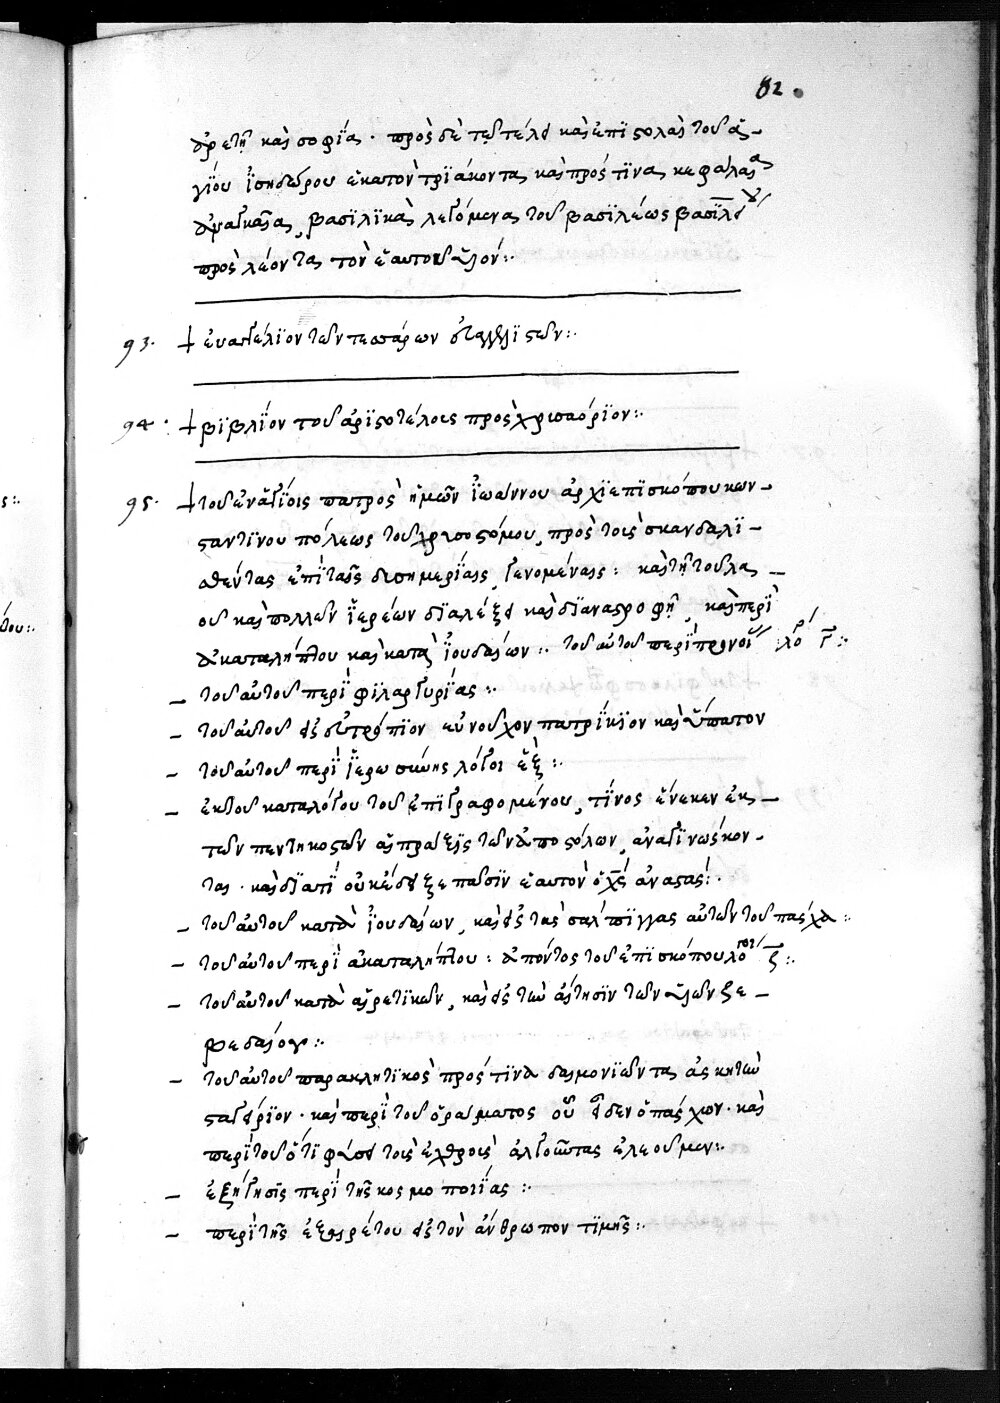 82.
ἀρετῆ καὶ σοφΐα · πρὸς δὲ τὸ τέλει καὶ ἐπιστολαὶ τοῦ ἁ-
γΐου ἰσηδώρου ἑκατὸν τριάκοντα καὶ πρός τινας κεφάλαια
ἀναγκαῖα, βασϊλϊκαὶ λεγόμενα τοῦ βασϊλέως βασϊλεί
πρὸς λέοντα τὸν ἑαυτοῦ υἱόν:·
93. + εὐαγγέλϊον τῶν τεσσάρων εὐαγγελϊστῶν:·
94. + βϊβλΐον τοῦ ἀρϊστοτέλους πρὸς χρισαόρϊον:·
95. + τοῦ ἐν ἁγΐοις πατρὸς ἡμῶν ἰωάννου ἀρχϊεπϊσκόπου κων-
σταντΐνου πόλεως τοῦ χρισοστόμου, πρὸς τοὺς σκανδαλϊ-
θέντας ἐπῒ ταῖς δισημερΐαις γενομέναις: καὶ τῆ τοῦ λα-
οῦ καὶ πολλῶν ἱερέων δϊαλέξει καὶ δϊαναστροφῆ, καὶ περῒ
ἀκαταλήπτου καὶ κατὰ ἰουδαίων:· τοῦ αὐτοῦ περῒ προνοί λό γ:·
- τοῦ αὐτοῦ περῒ φϊλαργυρΐας:·
- τοῦ αὐτοῦ εἰς εὐτρόπϊον εὐνοῦχον πατρΐκϊον καὶ ὕπατον
- τοῦ αὐτοῦ περῒ ἱερωσύνης λόγοι ἕξ:·
- ἐκ τοῦ καταλόγου τοῦ ἐπϊγραφομένου, τΐνος ἕνεκεν ἐκ-
τῶν πεντηκοστῶν αἱ πράξεις τῶν ἀποστόλων, ἀναγϊνώσκον-
ται · καὶ δϊατΐ οὐκ ἔδειξε πᾶσϊν ἑαυτὸν ὁ χς ἀναστάς:·
- τοῦ αὐτοῦ κατὰ ἰουδαίων, καὶ εἰς τὰς σαλπϊγγας αὐτῶν τοῦ πάσχα:·
- τοῦ αὐτοῦ περὶ ἀκαταλήπτου: ἀπόντος τοῦ ἐπϊσκόπου λόγοι ζ:·
- τοῦ αὐτοῦ κατὰ αἱρετϊκῶν, καὶ εἰς τὴν αἴτησϊν τῶν υἱῶν ζε-
βεδαίου:·
- τοῦ αὐτοῦ παρακλητϊκὸς πρός τϊνα δαιμονϊῶντα ἀσκητὴν
σταγείρϊον · καὶ περῒ τοῦ ὁράματος οὗ εἶδεν ὁ πάσχων · καὶ
περῒ τοῦ ὅτϊ φύσει τοὺς ἐχθροὺς ἀλγοῦντας ἐλεοῦμεν:·
- ἐξήγησϊς περῒ τῆς κοσμοποιΐας:·
- περῒ τῆς ἐξαιρέτου εἰς τὸν ἄνθρωπον τϊμῆς:·